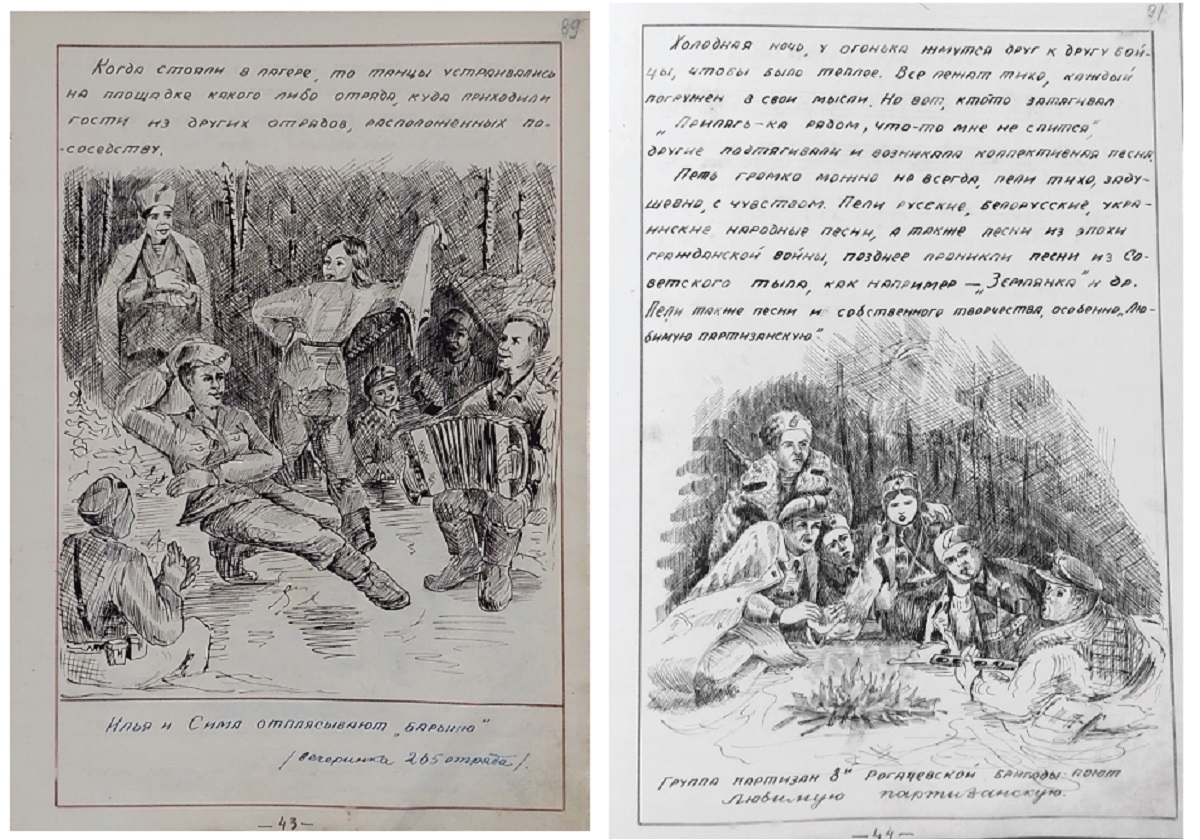 89
Когда стояли в лагере, то танцы устраивались
на площадке какого либо отряда, куда приходили
гости из других отрядов, расположенных по-
-соседству.
Илья и Сима отплясывают „Барыню"
/вечеринка 265 отряда/.
— 43 —
91
Холодная ночь, у огонька жмутся друг к другу бой-
цы, чтобы было теплее. Все лежат тихо, каждый
погружен в свои мысли. Но вот, кто-то затягивал
„Приляг-ка рядом, что-то мне не спится,"
другие подтягивали и возникала коллективная песня.
Петь громко можно не всегда, пели тихо, заду-
шевно, с чувством. Пели русские, белорусские, укра-
инские народные песни, а также песни из эпохи
гражданской войны, позднее проникли песни из Со-
ветского тыла, как например — „Землянка" и др.
Пели также песни и собственного творчества, особенно „Лю-
бимую партизанскую".
Группа партизан 8й Рогачевской бригады поют
любимую партизанскую.
— 44 —